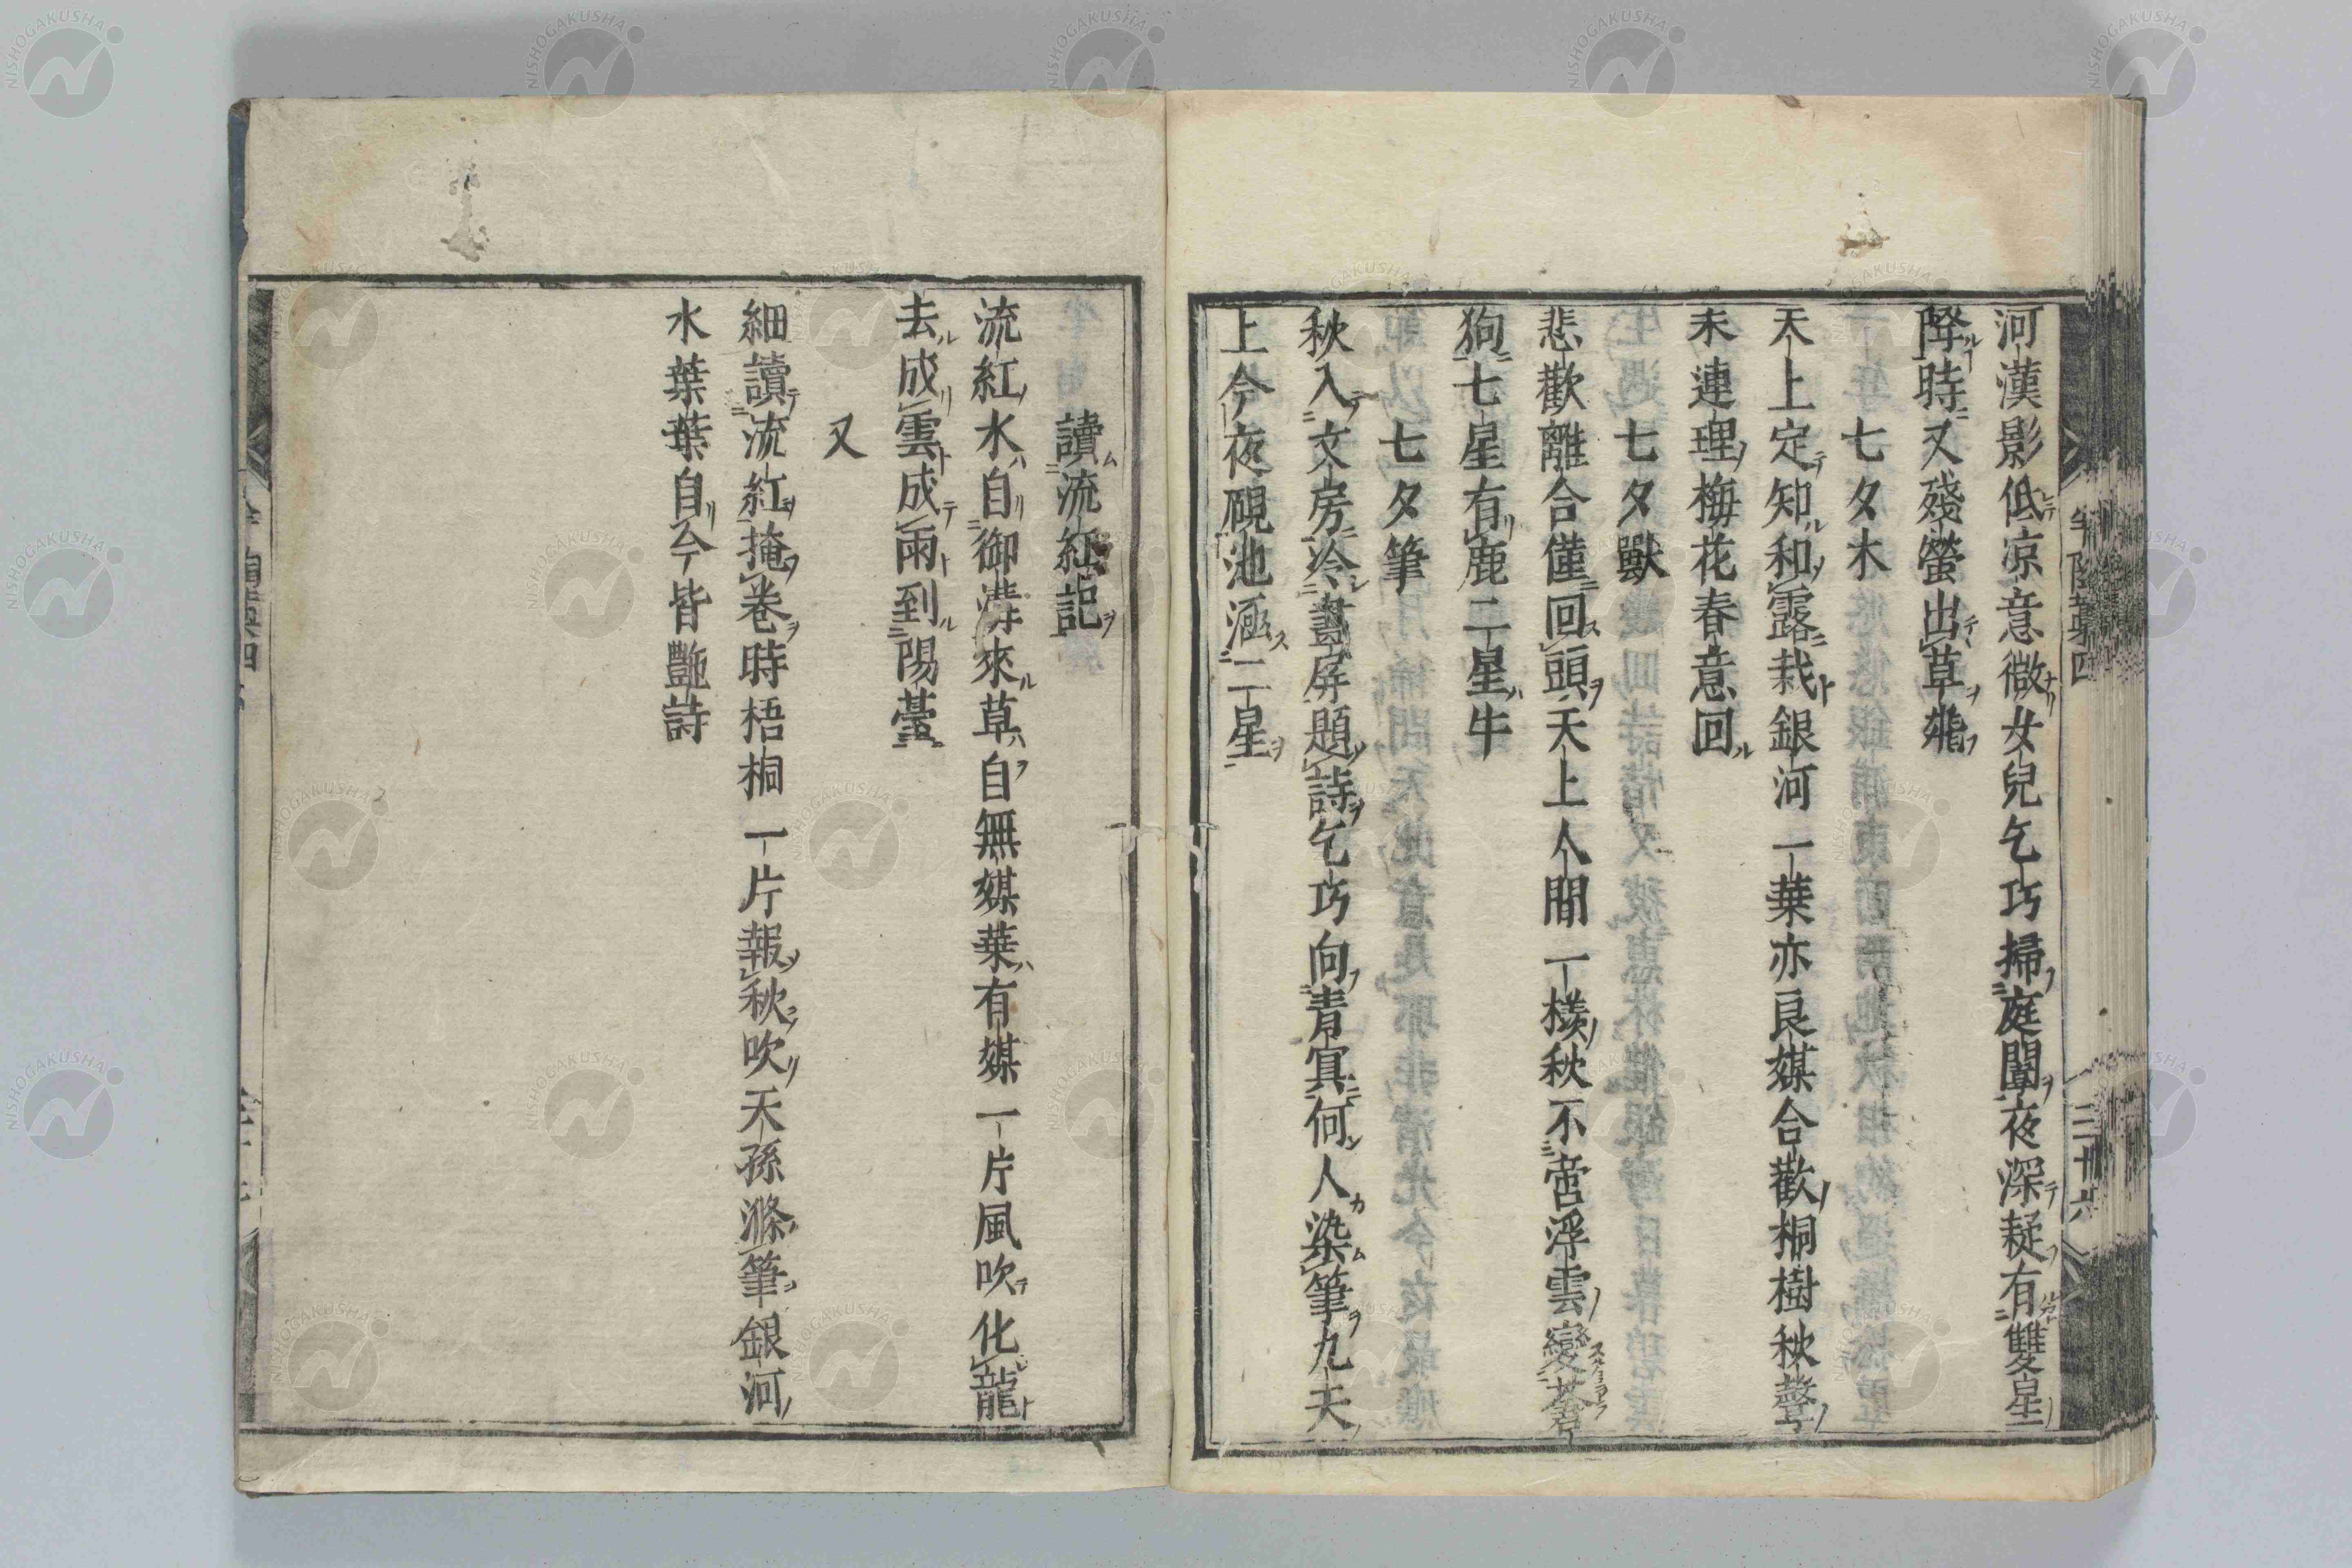 河漢影低凉意微女兒乞巧掃庭闈夜深疑有雙星
降時又殘螢出草飛
七夕木
天上定知和露栽銀河一葉亦良媒合歡桐樹秋聲
未連理梅花春意回
七夕獸
悲歡離合僅回頭天上人間一樣秋不啻浮雲變蒼
狗七星有鹿二星牛
七夕筆
秋入文房冷畫屏題詩乞巧向青冥何人染筆九天
上今夜硯池涵二星
三十六
讀流紅記
流紅水自御溝來草自無媒葉有媒一片風吹化龍
去成雲成雨到陽臺
又
細讀流紅掩卷時梧桐一片報秋吹天孫滌筆銀河
水葉葉自今皆艷詩
NISHOGAKUSHA